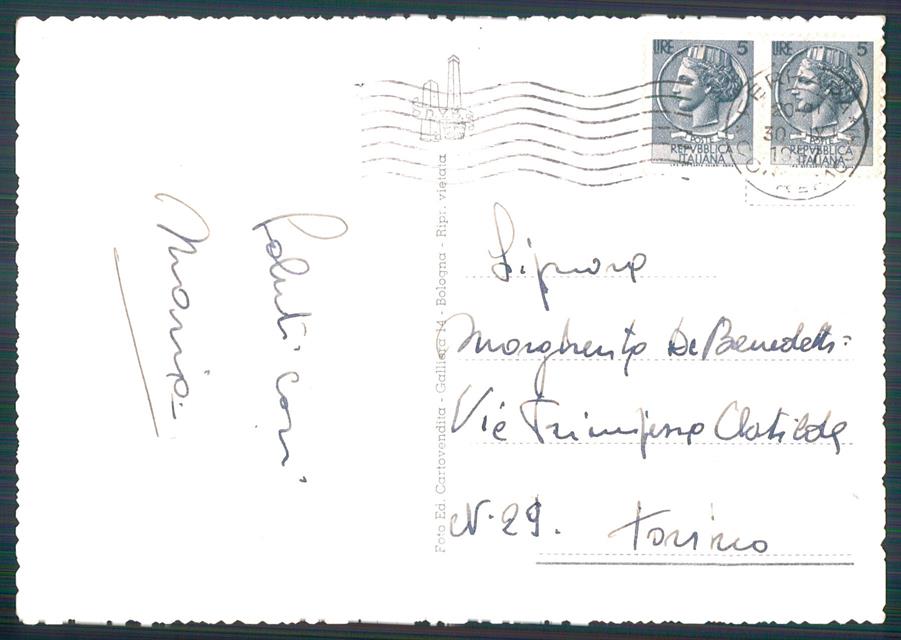 LIRE 5
POSTE
REPVBBLICA
ITALIANA
LIRE 5
POSTE
REPVBBLICA
ITALIANA
30-IV
19
Saluti cari
Maria
Foto Ed. Cartovendita - Galliera 14 - Bologna - Ripr. vietata
Signora
Margherita De Benedetti
Via Principessa Clotilde
N. 29. Torino